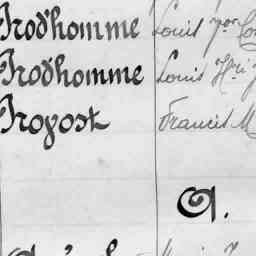 Prodhomme Louis
Prodhomme Louis
Provost Francis M
Q.